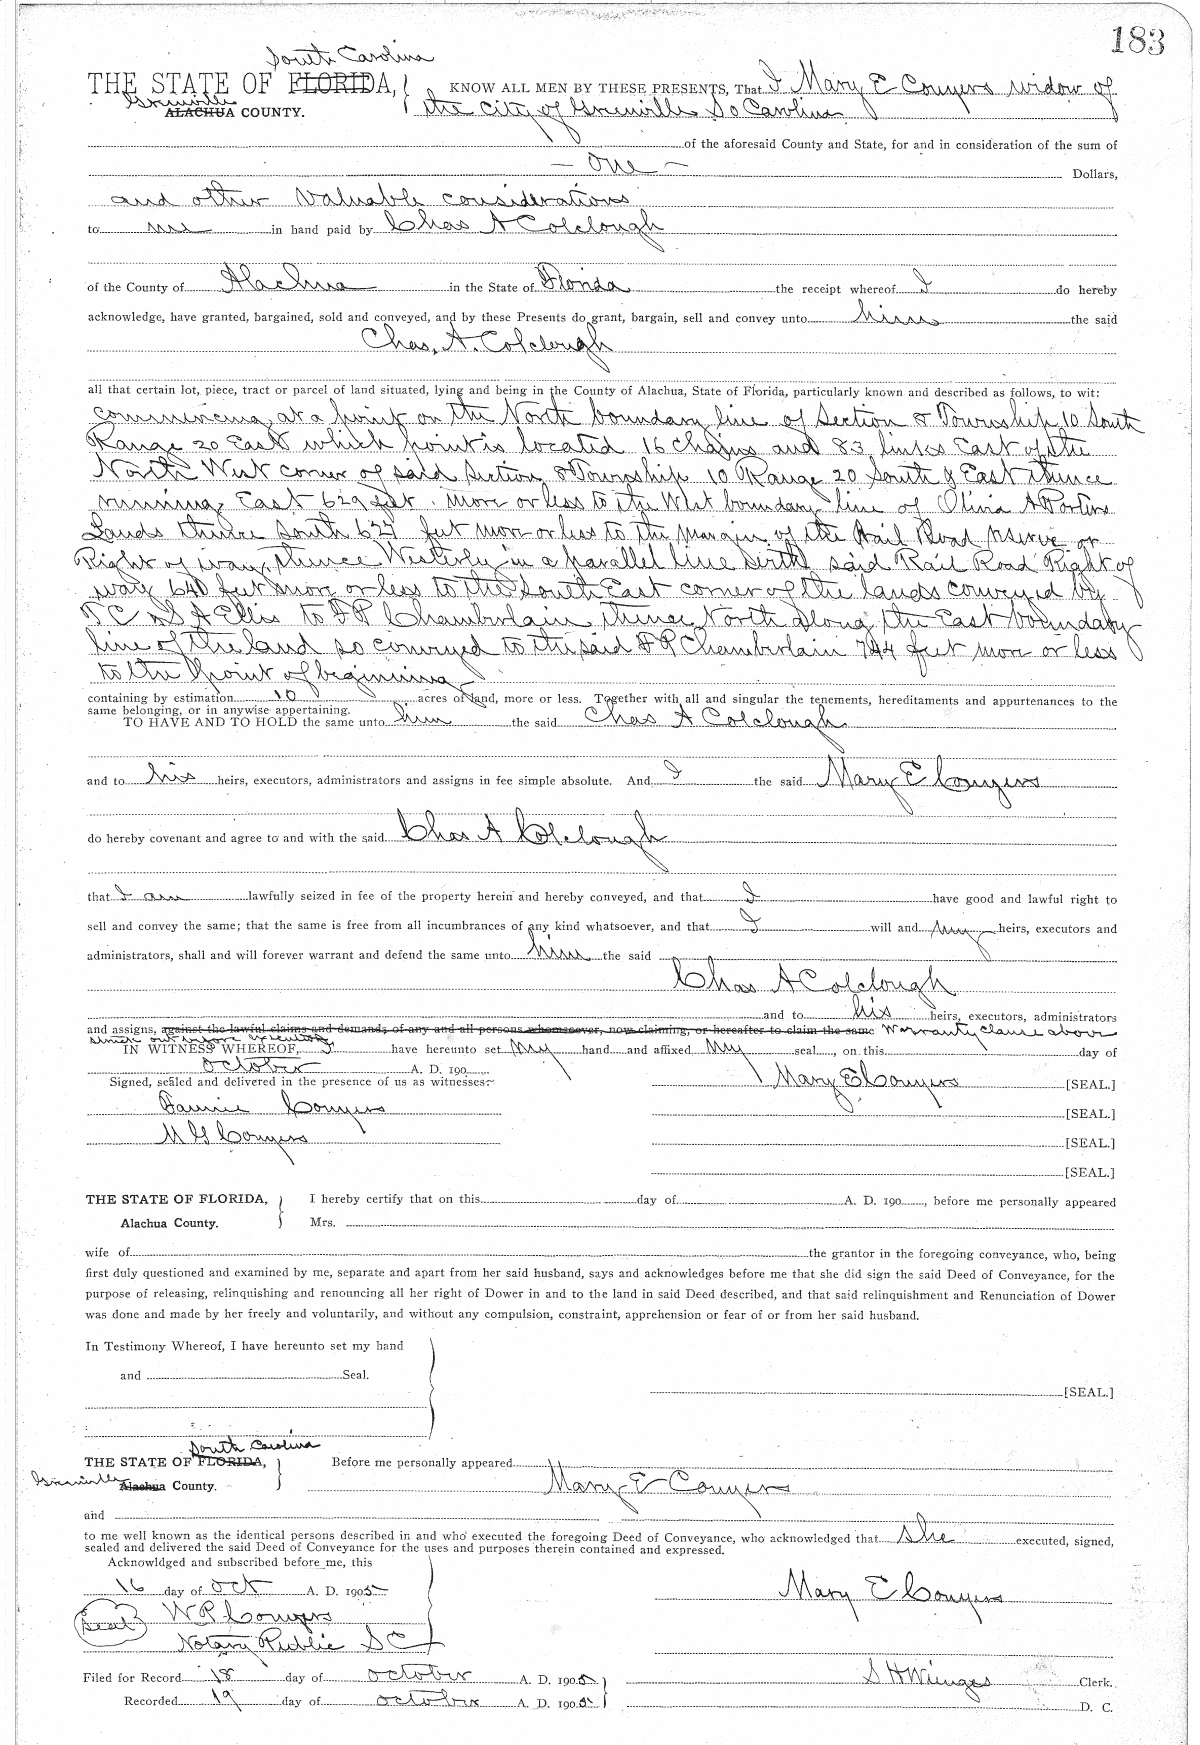 183
South Carolina
THE STATE OF FLORIDA, KNOW ALL MEN BY THESE PRESENTS, That I Mary E Conyers widow of
Greenville
ALACHUA COUNTY. the city of Greenville So Carolina
of the aforesaid County and State, for and in consideration of the sum of
— One — Dollars,
and other valuable considerations
to me in hand paid by Chas A Colclough
of the County of Alachua in the State of Florida the receipt whereof I do hereby
acknowledge, have granted, bargained, sold and conveyed, and by these Presents do grant, bargain, sell and convey unto him the said
Chas. A. Colclough
all that certain lot, piece, tract or parcel of land situated, lying and being in the County of Alachua, State of Florida, particularly known and described as follows, to wit:
commencing at a point on the North boundary line of Section 8 Township 10 South
Range 20 East which point is located 16 chains and 83 links East of the
North West corner of said Section 8 Township 10 Range 20 South & East thence
running East 629 feet more or less to the West boundary line of Olivia A Porters
Lands thence South 627 feet more or less to the margin of the Rail Road reserve or
Right of way, thence Westerly in a parallel line with said Rail Road Right of
way 640 feet more or less to the South East corner of the lands conveyed by
T C & S A Ellis to F P Chamberlain thence North along the East boundary
line of the land so conveyed to the said F P Chamberlain 744 feet more or less
to the point of beginning
containing by estimation 10 acres of land, more or less. Together with all and singular the tenements, hereditaments and appurtenances to the
same belonging, or in anywise appertaining.
TO HAVE AND TO HOLD the same unto him the said Chas A Colclough
and to his heirs, executors, administrators and assigns in fee simple absolute. And I the said Mary E Conyers
do hereby covenant and agree to and with the said Chas A Colclough
that I am lawfully seized in fee of the property herein and hereby conveyed, and that I have good and lawful right to
sell and convey the same; that the same is free from all incumbrances of any kind whatsoever, and that I will and my heirs, executors and
administrators, shall and will forever warrant and defend the same unto him the said
Chas A Colclough
and to his heirs, executors, administrators
and assigns, against the lawful claims and demands of any and all persons whomsoever, now claiming, or hereafter to claim the same Warranty clause above
stricken out before execution
IN WITNESS WHEREOF, I have hereunto set My hand and affixed My seal, on this day of
October A. D. 190
Signed, sealed and delivered in the presence of us as witnesses: Mary E Conyers [SEAL.]
Fannie Conyers [SEAL.]
M G Conyers [SEAL.]
[SEAL.]
THE STATE OF FLORIDA, I hereby certify that on this day of A. D. 190 , before me personally appeared
Alachua County. Mrs.
wife of the grantor in the foregoing conveyance, who, being
first duly questioned and examined by me, separate and apart from her said husband, says and acknowledges before me that she did sign the said Deed of Conveyance, for the
purpose of releasing, relinquishing and renouncing all her right of Dower in and to the land in said Deed described, and that said relinquishment and Renunciation of Dower
was done and made by her freely and voluntarily, and without any compulsion, constraint, apprehension or fear of or from her said husband.
In Testimony Whereof, I have hereunto set my hand
and Seal.
[SEAL.]
South Carolina
THE STATE OF FLORIDA, Before me personally appeared
Greenville Alachua County. Mary E Conyers
and
to me well known as the identical persons described in and who executed the foregoing Deed of Conveyance, who acknowledged that she executed, signed,
sealed and delivered the said Deed of Conveyance for the uses and purposes therein contained and expressed.
Acknowldged and subscribed before me, this
16 day of Oct A. D. 1905 Mary E Conyers
Seal W P Conyers
Notary Public S C
Filed for Record 18 day of October A. D. 1905 S H Wienges Clerk.
Recorded 19 day of October A. D. 1905 D. C.